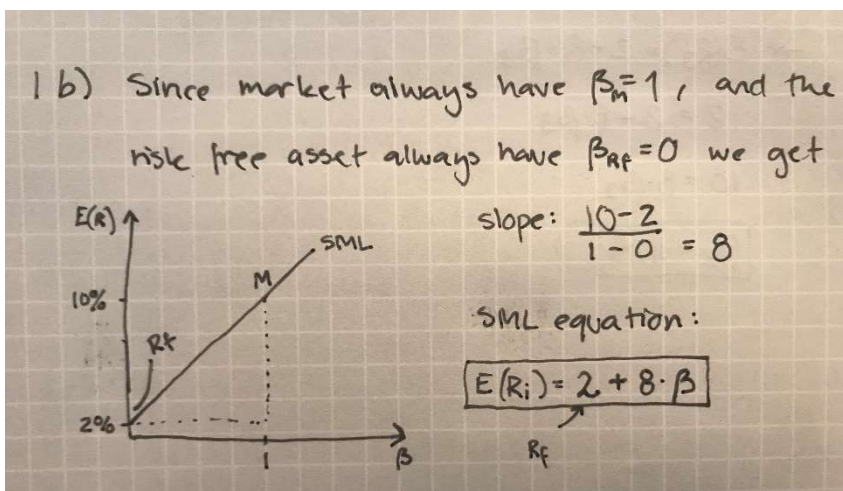 1 b) Since market always have βm=1, and the
risk free asset always have βRf=0 we get
E(R)
SML
M
10%
Rf
2%
1
β
slope: 10-2
1-0 = 8
SML equation:
E(Ri) = 2 + 8·β
Rf